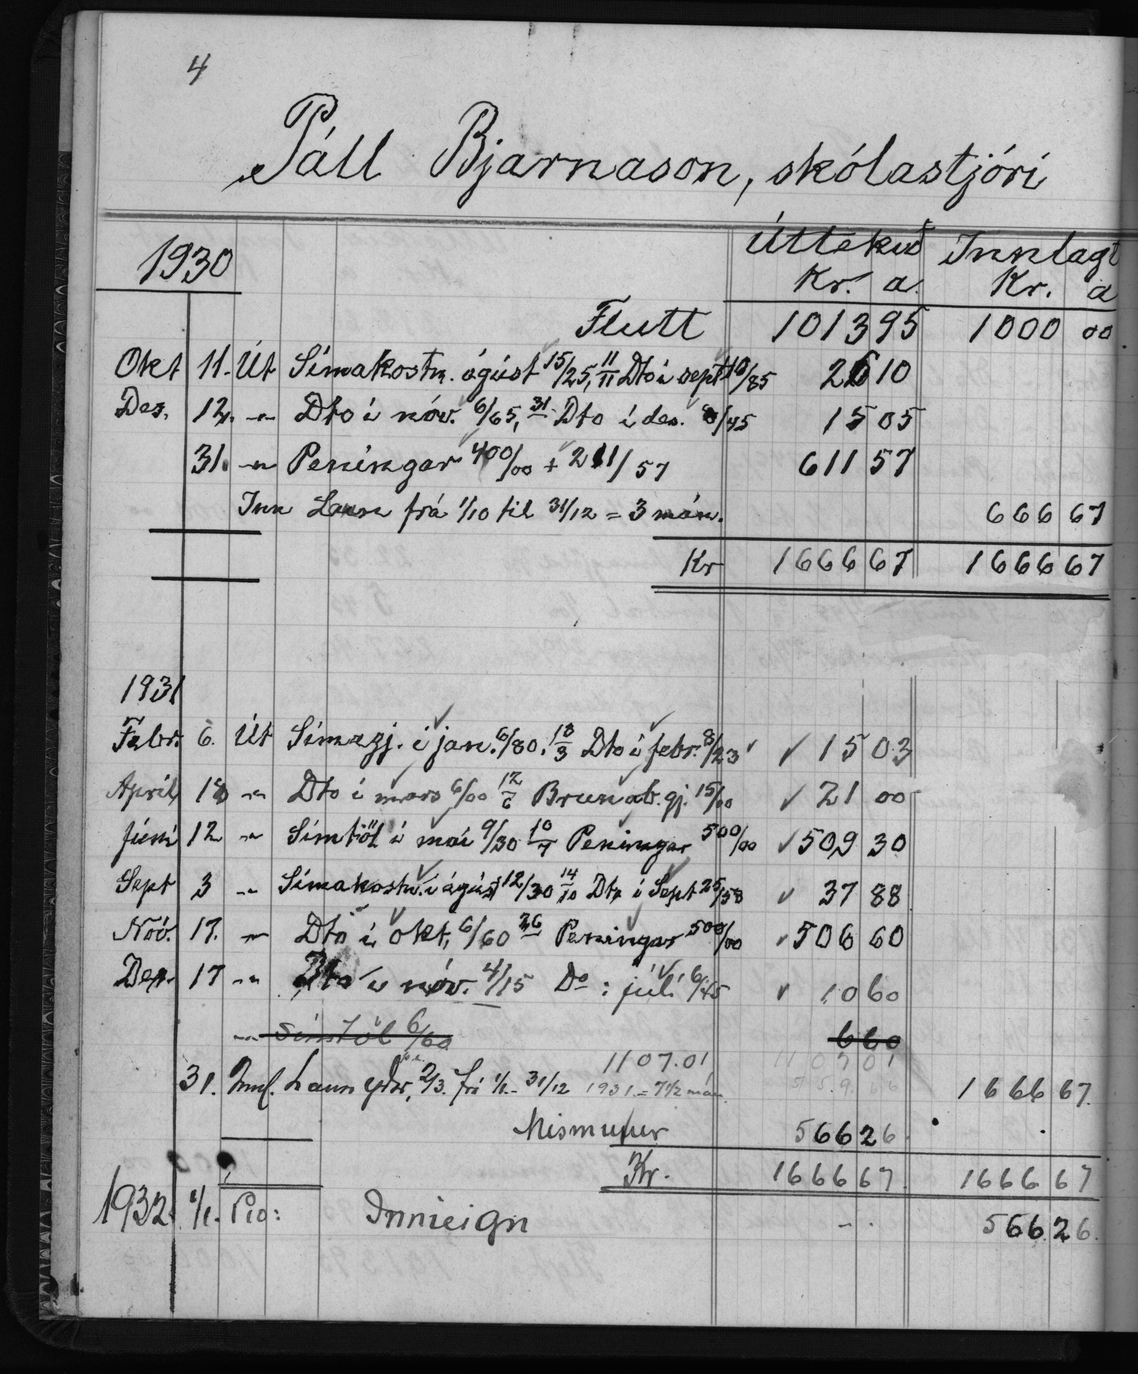 4
Páll Bjarnason, skólastjóri
1930 Úttekið Innlagt
Kr. a. Kr. a
Flutt 1013 95 1000 00
Okt 11. Út Símakostn. ágúst 15/25, 11/11 Dto í sept 10/85 26 10
Des. 12. -"- Dto í nóv. 6/65, 31 Dto í des. 8/45 15 05
31. -"- Peningar 400/00 + 211/57 611 57
Inn Laun frá 1/10 til 31/12 = 3 mán. 666 67
Kr 1666 67 1666 67
1931
Febr. 6. Út Símagj. í jan. 6/80, 18/3 Dto í febr. 8/23 15 03
April 18 -"- Dto í mars 6/00 12/6 Brunab.gj. 15/00 21 00
Júní 12 -"- Símtöl í maí 9/30 10/7 Peningar 500/00 509 30
Sept 3 -"- Símakostn. í ágúst 12/30 14/10 Dto í Sept 25/58 37 88
Nóv. 17. -"- Dto í okt. 6/60 26 Peningar 500/00 506 60
Des. 17 -"- Dto í nóv. 4/15 Do í júlí 6/45 10 60
-"- símtöl 6/60 6 60
1107.01 1107 01
31. Innl. Laun frá 1/1 - 31/12 1931 = 7 1/2 mán. 1666 67.
Mismunur 566 26
Kr. 1666 67. 1666 67
1932 1/1. Pio: Innieign -- 566 26.